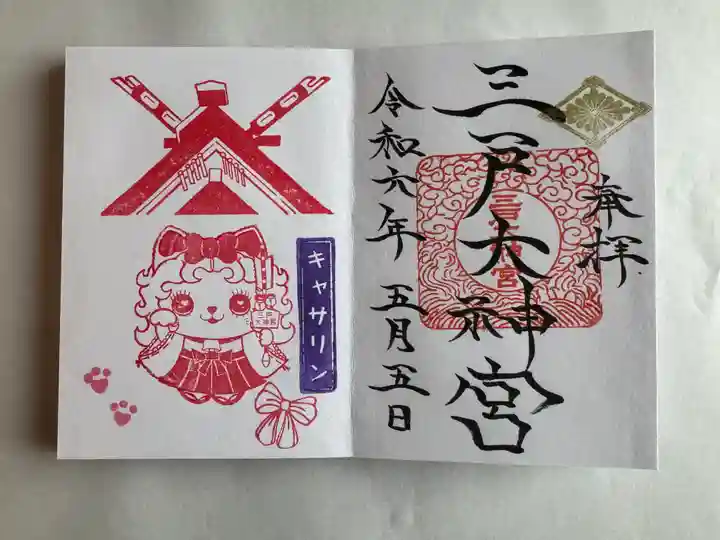 奉拝
三戸大神宮
三戸大神宮
令和六年 五月五日
キャサリン
三戸
大神宮